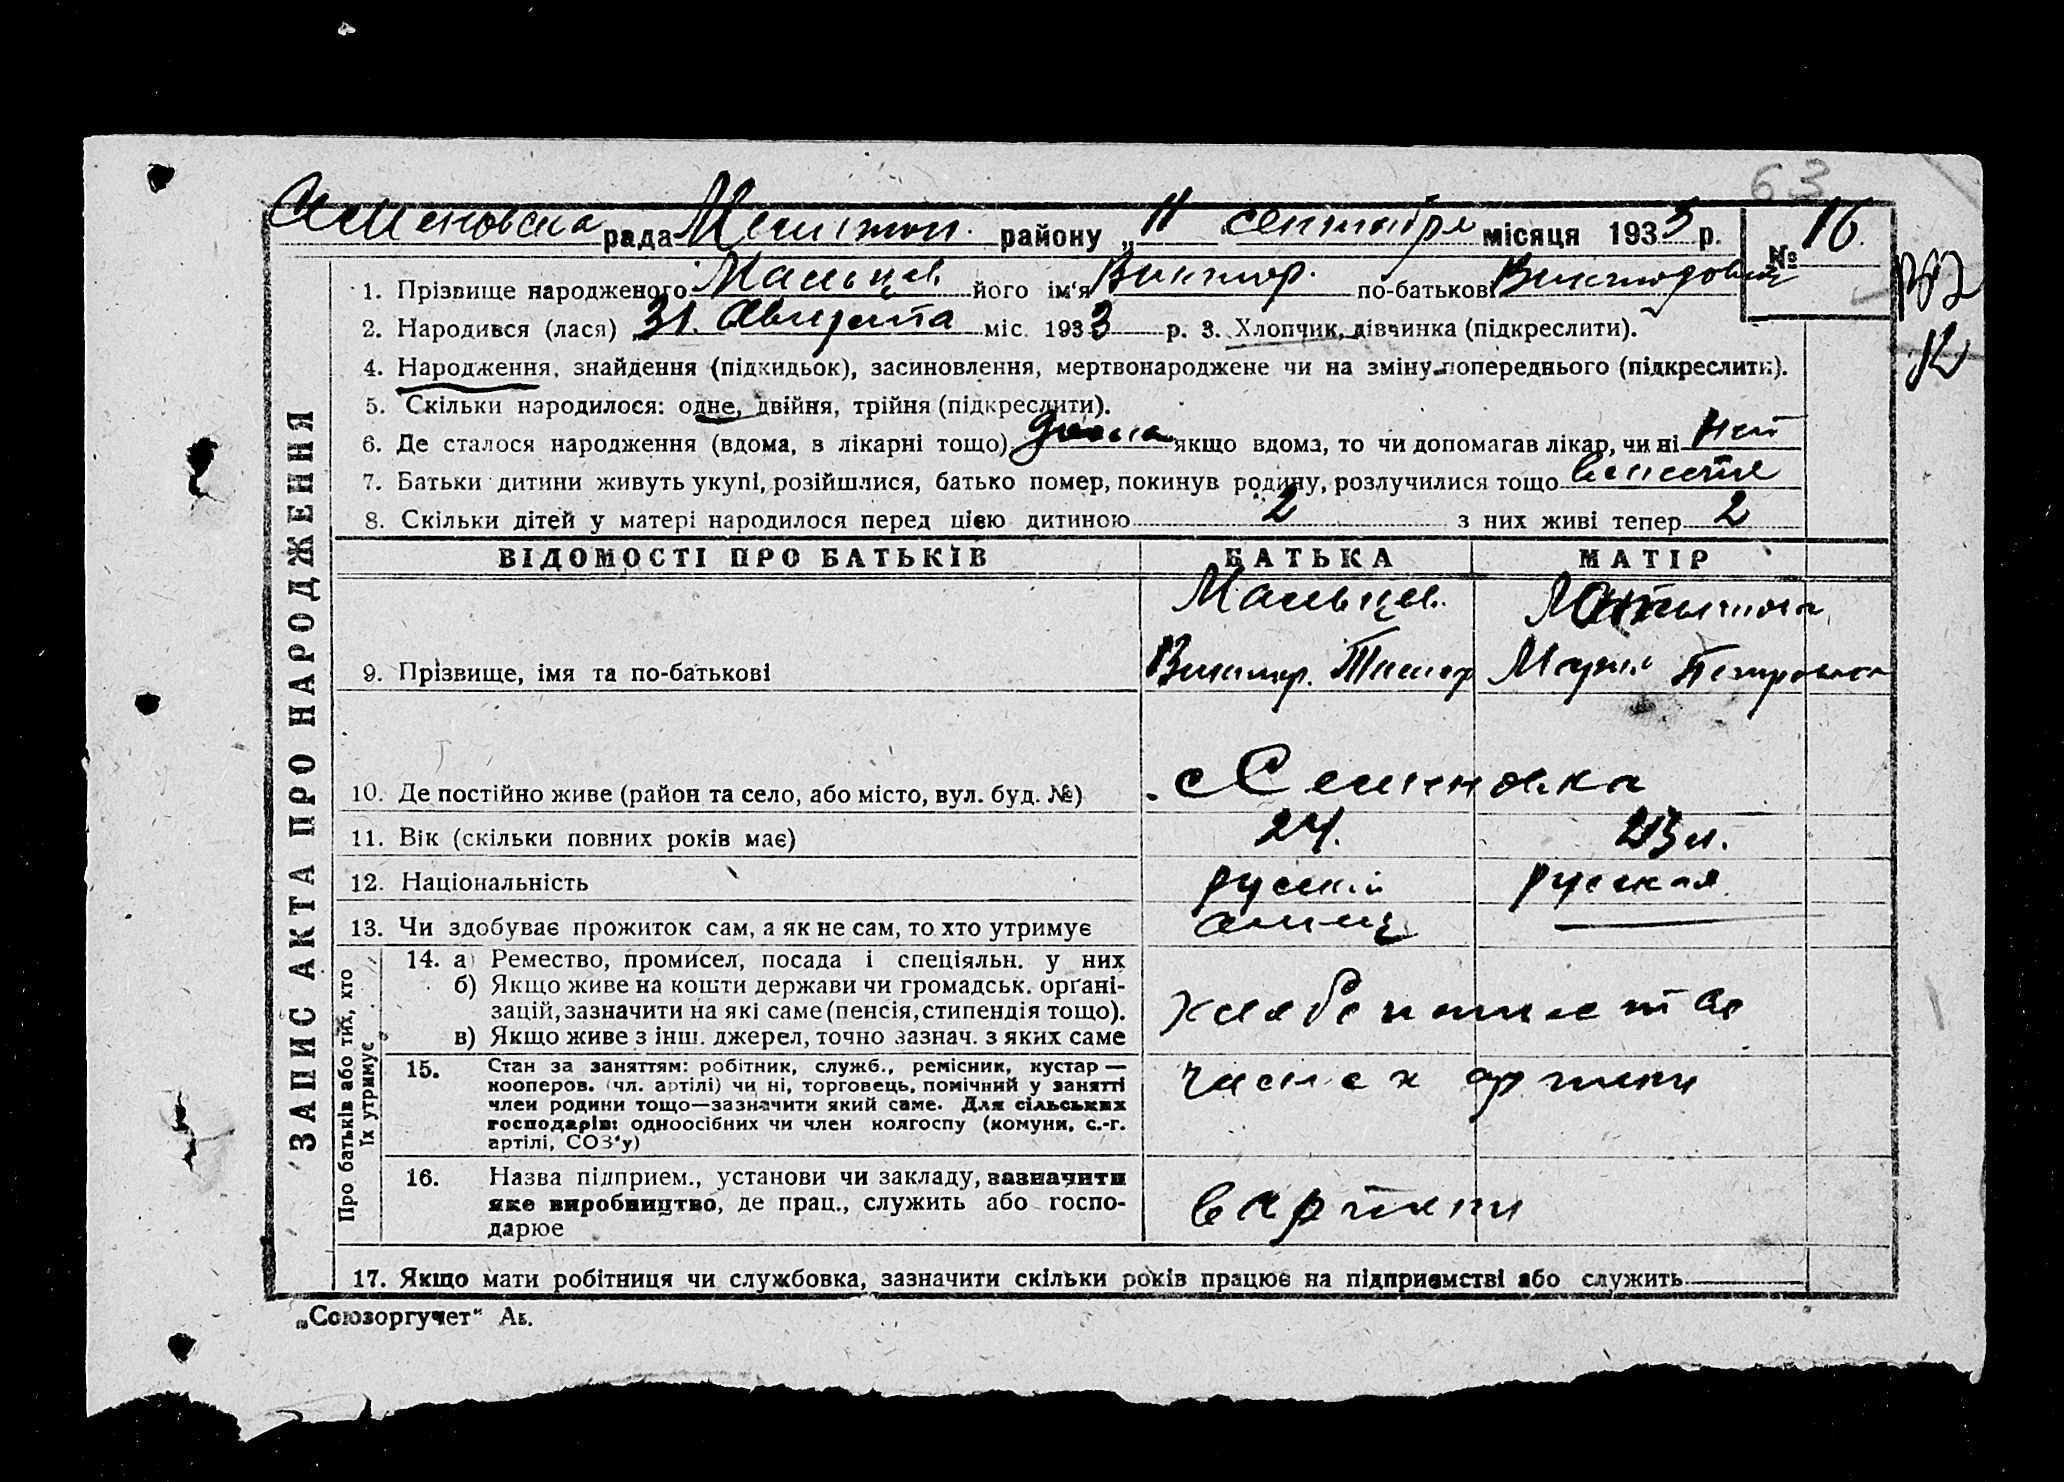 63
Семеновска рада Мелитоп. району „11 сентября місяця 1933 р. № 16.
1. Прізвище народженого Мальцев його ім'я Виктор. по-батькові Викторович
2. Народився (лася) 31. Августа міс. 1933 р. 3. Хлопчик, дівчинка (підкреслити).
4. Народження, знайдення (підкидьок), засиновлення, мертвонароджене чи на зміну попереднього (підкреслити).
5. Скільки народилося: одне, двійня, трійня (підкреслити).
6. Де сталося народження (вдома, в лікарні тощо) дома якщо вдома, то чи допомагав лікар, чи ні нет
7. Батьки дитини живуть укупі, розійшлися, батько помер, покинув родину, розлучилися тощо вместе
8. Скільки дітей у матері народилося перед цією дитиною 2 з них живі тепер 2
ЗАПИС АКТА ПРО НАРОДЖЕННЯ
ВІДОМОСТІ ПРО БАТЬКІВ БАТЬКА МАТІР
Мальцев.
9. Прізвище, імя та по-батькові Виктор. Мария Петровна
10. Де постійно живе (район та село, або місто, вул. буд. №) с Семеновка
11. Вік (скільки повних років має) 24. 23 л.
12. Національність русский русская
13. Чи здобуває прожиток сам, а як не сам, то хто утримує
Про батьків або тих, хто їх утримує
14. а) Ремество, промисел, посада і спеціяльн. у них
б) Якщо живе на кошти держави чи громадськ. орґані-
зацій, зазначити на які саме (пенсія, стипендія тощо).
в) Якщо живе з інш. джерел, точно зазнач. з яких саме
хлебопашество
15. Стан за заняттям: робітник, служб., ремісник, кустар —
кооперов. (чл. артілі) чи ні, торговець, помічний у занятті
член родини тощо—зазначити який саме. Для сільських
господарів: одноосібних чи член колгоспу (комуни, с.-г.
артілі, СОЗ'у)
член артели
16. Назва підприєм., установи чи закладу, зазначити
яке виробництво, де прац., служить або госпо-
дарює
в артели
17. Якщо мати робітниця чи службовка, зазначити скільки років працює на підприємстві або служить
„Союзоргучет“